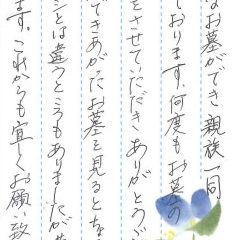 なお墓ができ 親族一同
ております。何度もお墓の
をさせていただき ありがとうご
できあがったお墓を見るとち
とは違うところもありましたが
ます。これからも宜しくお願い致